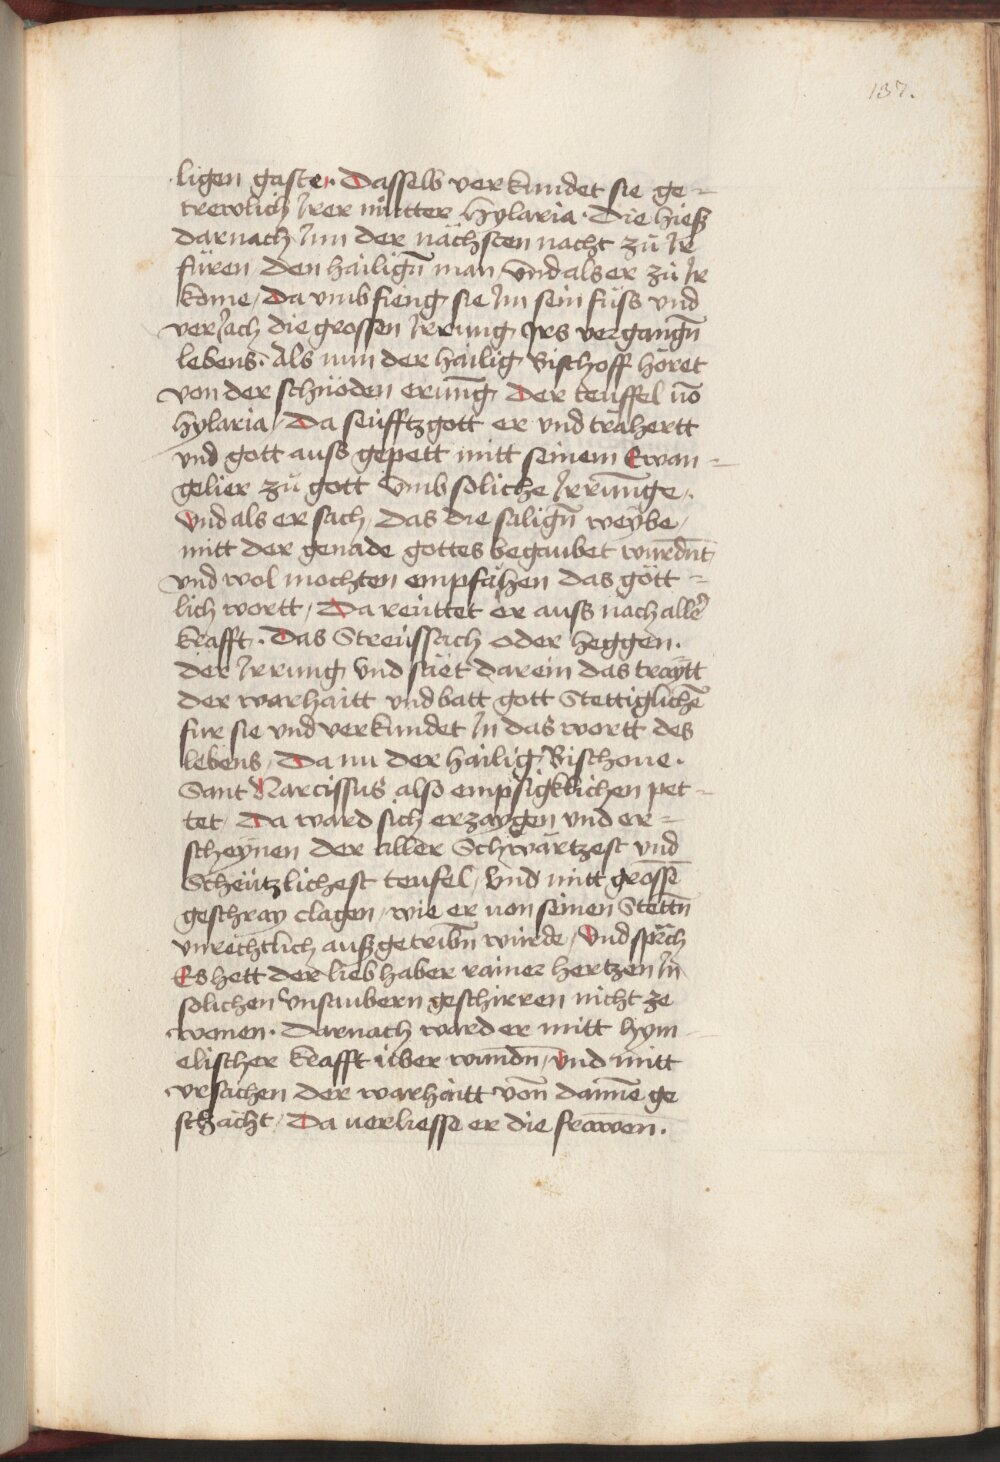 137.
ligen gaste. Dasselb verkundet sie ge=
trewlich Irer mutter Hylaria. Die hiesz
darnach Inn der nächsten nacht zů Ir
füren den hailigñ man vnd als er zů Ir
kome, Da vmbfieng sie Im sein füss vnd
veriach die grossen Irrung Irs vergangñ
lebens. Als nun der hailig Bischoff höret
von der schnöden erung̃ Der teuffel vō
Hylaria, Da seüfftzgott er vnd trähertt
vnd gott auss gepett mitt seinem Ewan=
gelier zů gott vmb soliche Irrunnge.
Vnd als er sach, das die saligñ weybe,
mitt der genade gottes begaubet wurdñt
vnd wol mochten empfähen das gött=
lich wortt, Da reüttet er auss nach aller̃
krafft. Das Streussach oder heggen.
der Irrung vnd säet darein das traytt
der warhaitt vnd batt gott Stettiglichē
fur sie vnd verkundet In das wortt des
lebens, Da nu der hailig Bischoue.
Sant Narcissus also empsigklichen pet=
tet, Da ward sich erzaygen vnd er=
scheynen der aller Schwärtzest vnd
Scheützlichest teufel, vnd mitt grossē
geschray clagen, wie er von seinen Stettñ
vnrechtlich auszgetribñ würde, Vnd sprach
Es hett der liebhaber rainer hertzen In
solichen vnsaubern geschirren nicht ze
wonen. Darnach ward er mitt hym=
elischer krafft ůber wundñ, Vnd mitt
vrsachen der warhaitt von̄ dannē ge
schächt, Da verliesse er die frawen.